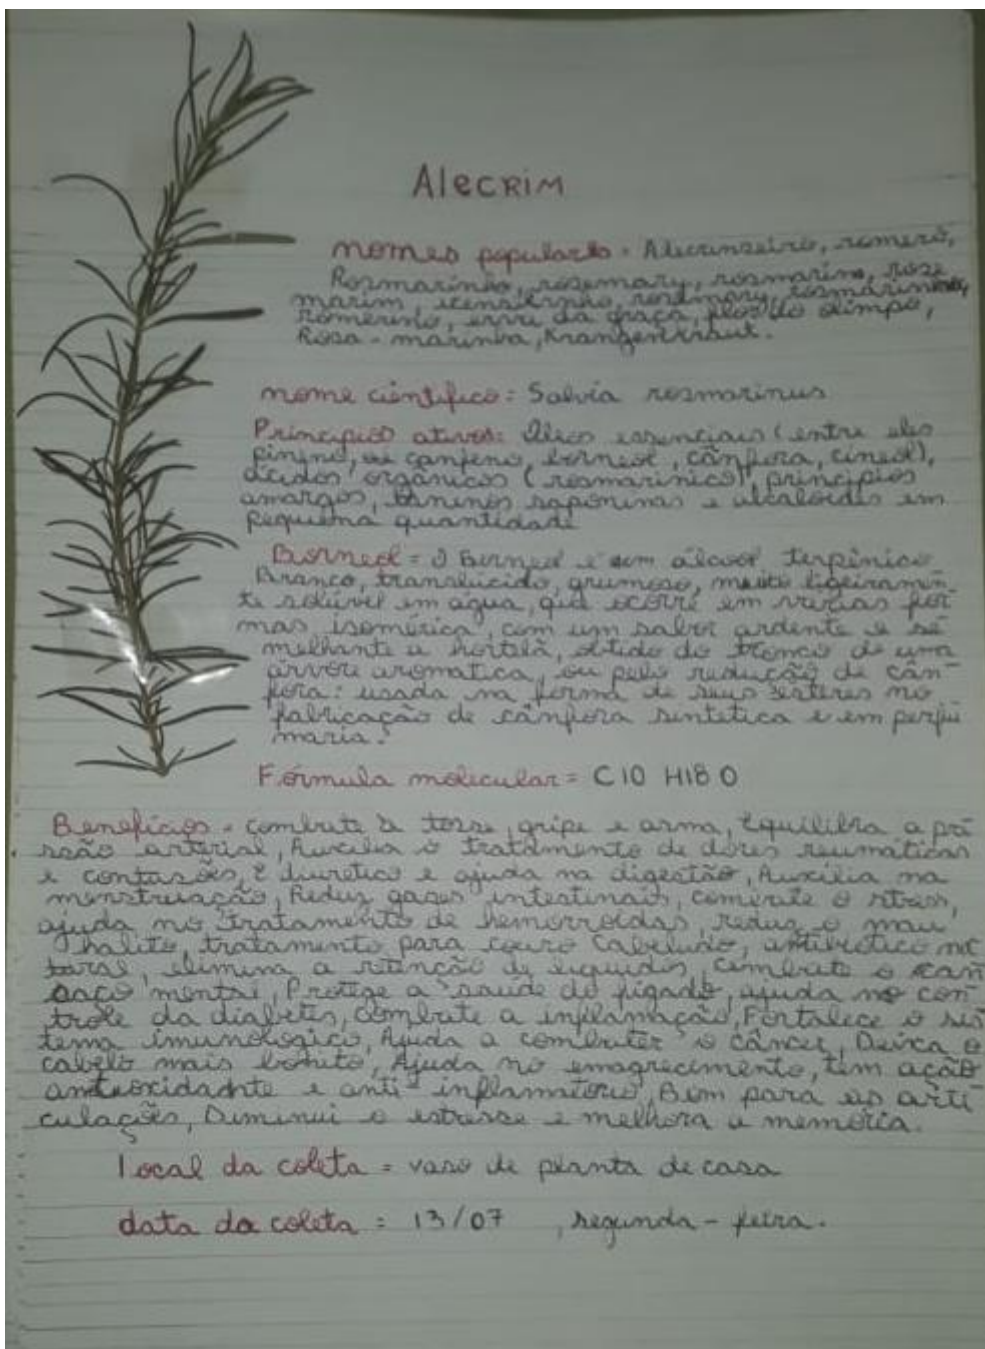 Alecrim
nomes populares = Alecrinzeiro, romero,
Rosmarinho, rosemary, rosmarino, rose
marim, rosmarinho,
romerino, erva da graça, flor do olimpo,
Rosa-marinha, Kranzenkraut.
nome científico = Salvia rosmarinus
Princípios ativos: Óleos essenciais (entre eles
pineno, canfeno, borneol, cânfora, cineol),
ácidos orgânicos (rosmarínico), princípios
amargos, taninos saponinas e alcaloides em
pequena quantidade
Borneol = O Borneol é um álcool terpênico
Branco, translúcido, grumoso, muito ligeiramen
te solúvel em água, que ocorre em várias for
mas isomérica, com um sabor ardente e se
melhante a hortelã, obtido do tronco de uma
árvore aromatica, ou pela redução de cân-
fora: usada na forma de seus ésteres na
fabricação de cânfora sintetica e em perfu
maria.
Fórmula molecular = C10 H18 O
Benefícios = combate a tosse, gripe e asma, Equilibra a pre
ssão arterial, Auxilia o tratamento de dores reumáticas
e contusões, É diurético e ajuda na digestão, Auxilia na
menstruação, Reduz gases intestinais, combate o stress,
ajuda no tratamento de hemorroidas, reduz o mau
halito, tratamento para couro Cabeludo, antibiotico na
tural, elimina a retenção de liquidos, combate o can
saço mental, Protege a saúde do fígado, ajuda no con
trole da diabetes, combate a inflamação, Fortalece o sis
tema imunologico, Ajuda a combater o câncer, Deixa o
cabelo mais bonito, Ajuda no emagrecimento, tem ação
antioxidante e anti-inflamatório, Bom para as arti
culações, Diminui o estresse e melhora a memória.
Local da coleta = vaso de planta de casa
data da coleta = 13/07 , segunda-feira.